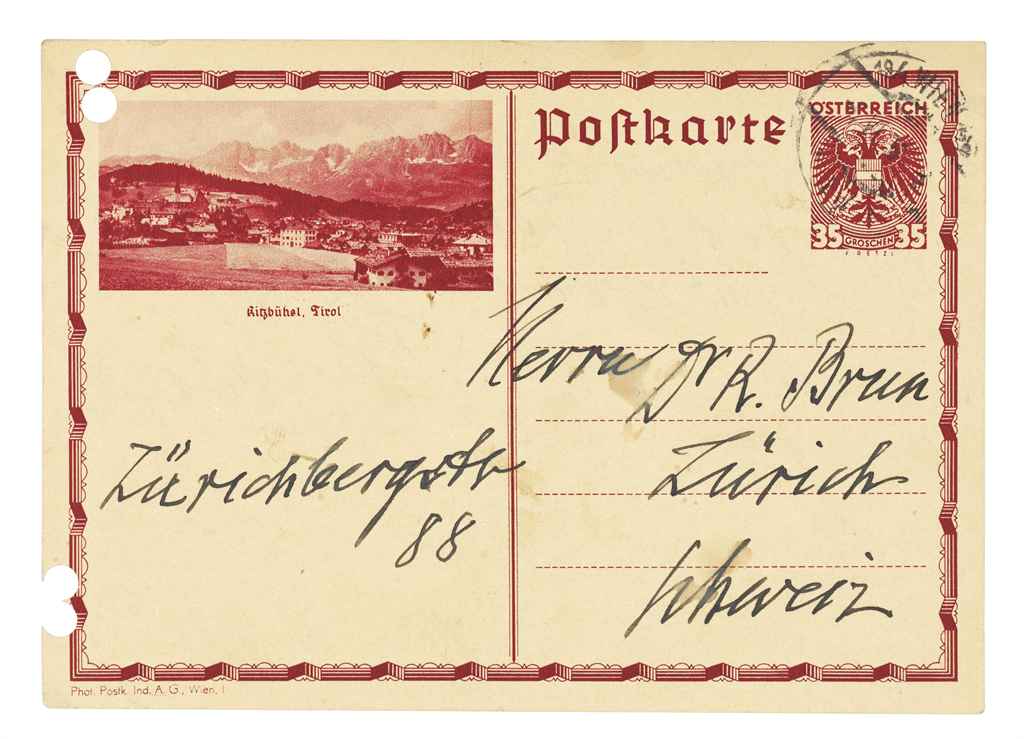 Postkarte
ÖSTERREICH
35 GROSCHEN 35
Kitzbühel, Tirol
Herrn Dr R. Brun
Zürich
Schweiz
Zürichbergstr
88
Phot. Postk. Ind. A. G., Wien, I